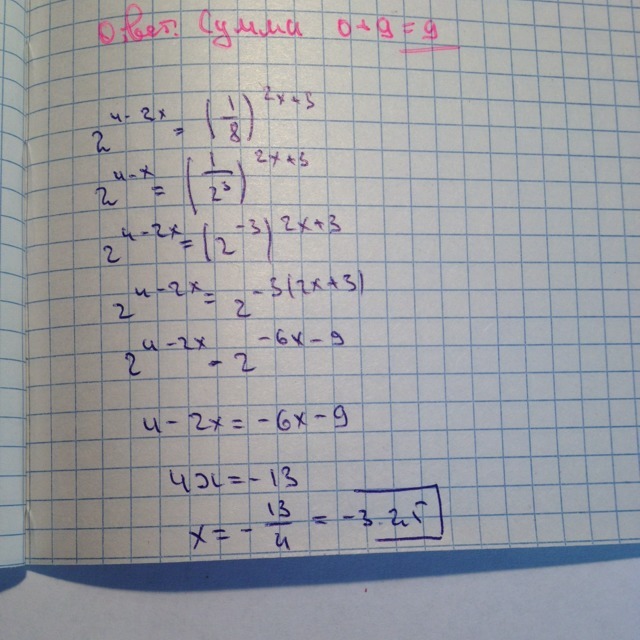 Ответ: Сумма 0+9=9
2^{4-2x} = (1/8)^{2x+3}
2^{4-x} = (1/2^3)^{2x+3}
2^{4-2x} = (2^{-3})^{2x+3}
2^{4-2x} = 2^{-3(2x+3)}
2^{4-2x} - 2^{-6x-9}
4-2x=-6x-9
4x=-13
x=-13/4 = -3.25